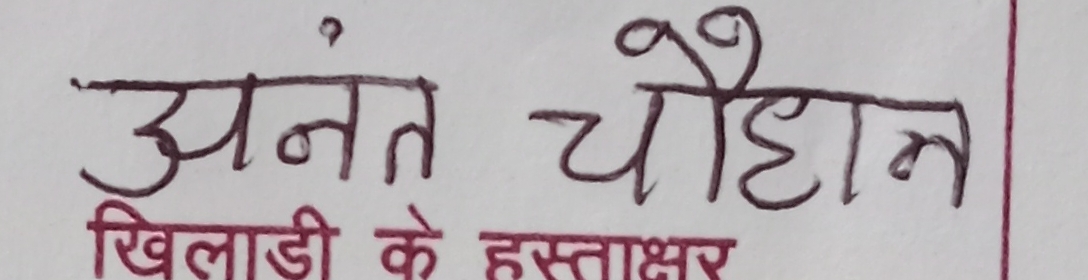 अनंत चौहान
खिलाडी के हस्ताक्षर